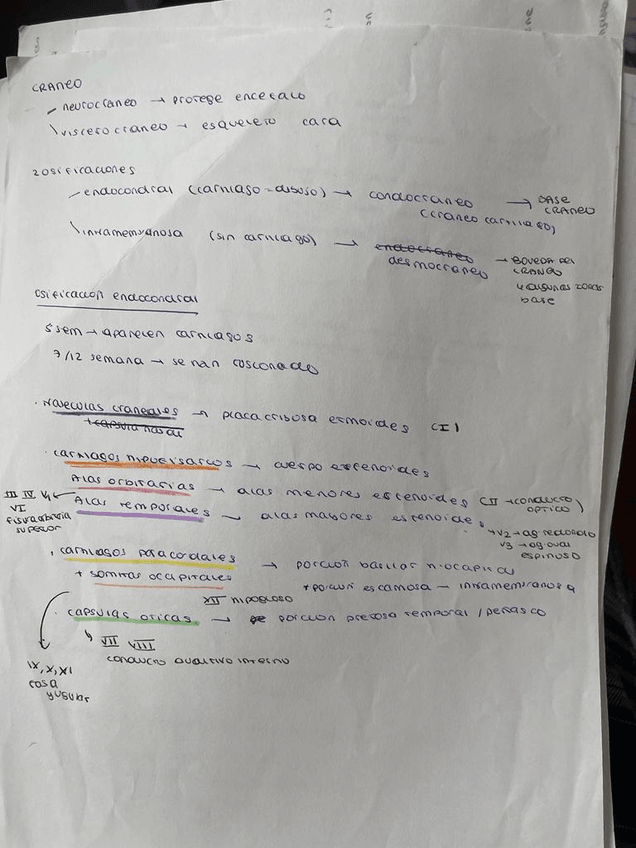 CRANEO
neurocraneo → protege encefalo
viscerocraneo → esqueleto cara
2 osificaciones
endocondral (cartilago → hueso) → condocraneo (craneo cartilago) → BASE CRANEO
intramembranosa (sin cartilago) → endocraneo desmocraneo → BOVEDA DEL CRANEO
y algunas zonas base
osificacion endocondral
5 sem → aparecen cartilagos
7/12 semana → se han fusionado
· trabeculas craneales → placa cribosa etmoides (I)
+ capsula nasal
· cartilagos hipofisarios → cuerpo esfenoides
Alas orbitarias → alas menores esfenoides (II → conducto optico)
Alas temporales → alas mayores esfenoides
III IV V1
VI
fisura orbitaria
superior
→ V2 → ag redondo
V3 → ag oval
espinoso
· cartilagos paracordales → porcion basilar n. occipital
+ somitas occipitales + porcion escamosa — intramembranosa
XII hipogloso
· capsulas oticas → porcion petrosa temporal / peñasco
VII VIII
conducto auditivo interno
IX, X, XI
fosa
yugular